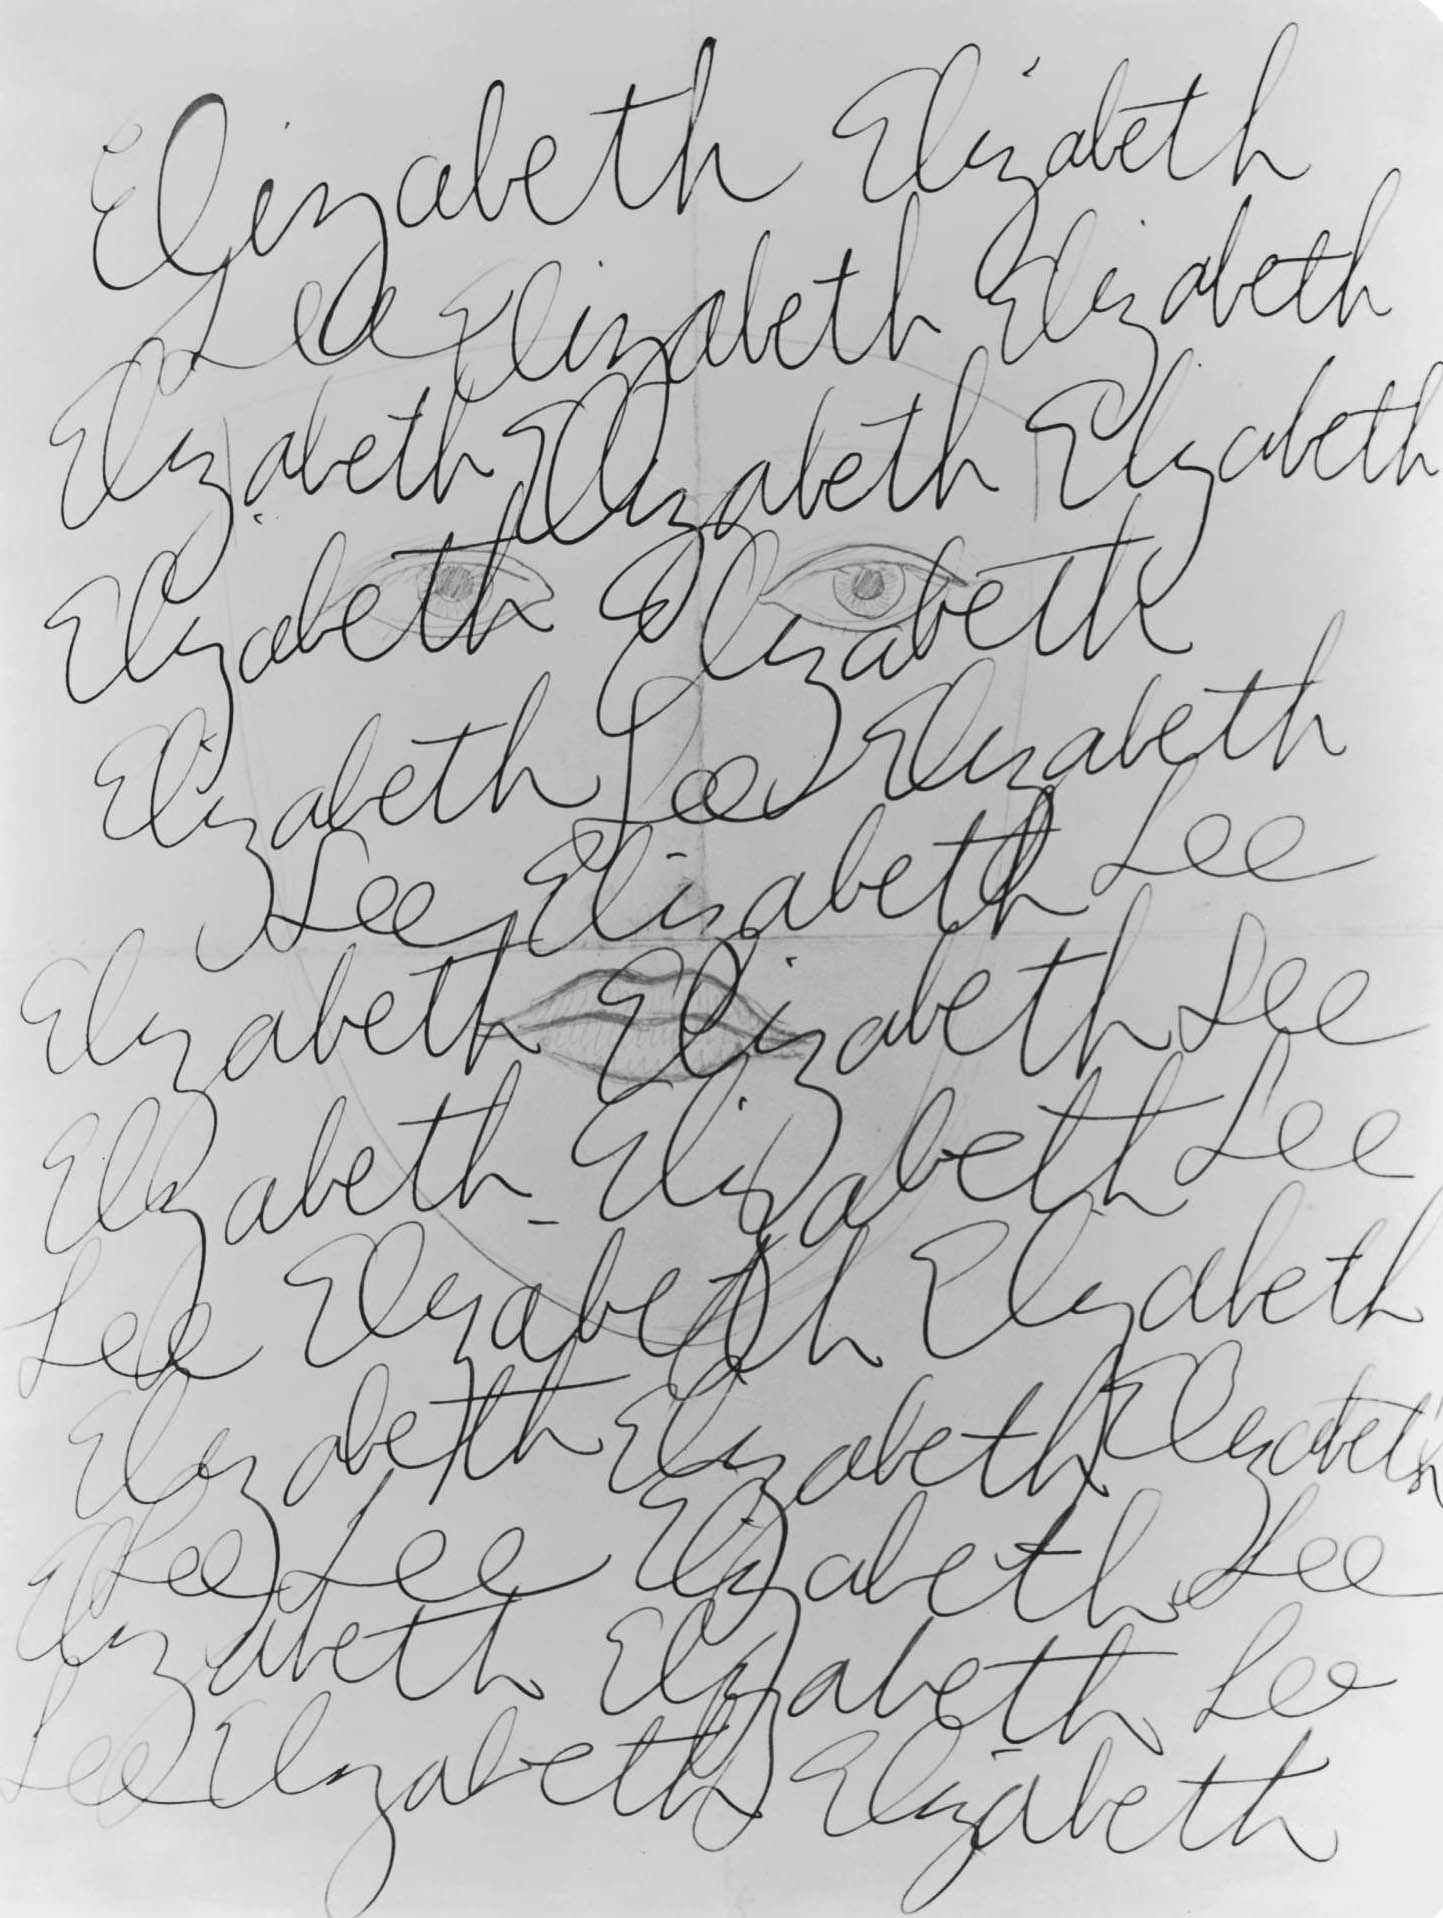 Elizabeth Elizabeth
Lee Elizabeth Elizabeth
Elizabeth Elizabeth Elizabeth
Elizabeth Elizabeth
Elizabeth Lee Elizabeth
Lee Elizabeth Lee
Elizabeth Elizabeth Lee
Elizabeth Elizabeth Lee
Lee Elizabeth Elizabeth
Elizabeth Elizabeth Elizabeth
Lee Lee Elizabeth Lee
Elizabeth Elizabeth Lee
Lee Elizabeth Elizabeth